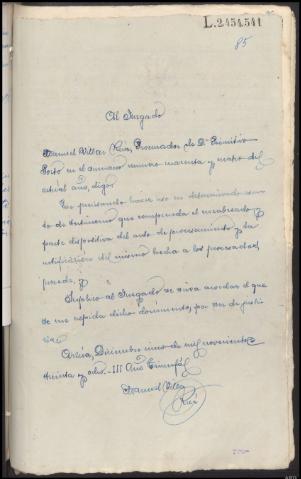 L.2454.541
85
Al Juzgado
Manuel Villar Ruiz, Procurador de Dn Primitivo
Porto en el sumario número cuarenta y nueve del
actual año, digo:
Que precisando hacer uso en determinado
to de testimonio que comprenda el encabezado y
parte dispositiva del auto de procesamiento y la
notificación del mismo hecha a los procesados,
procede, y
Suplico al Juzgado se sirva acordar el que
se me expida dicho documento, por ser de justi-
cia.
Arzúa, Diciembre de mil novecientos
treinta y ocho.-III Año Triunfal.
Manuel Villar
Ruiz